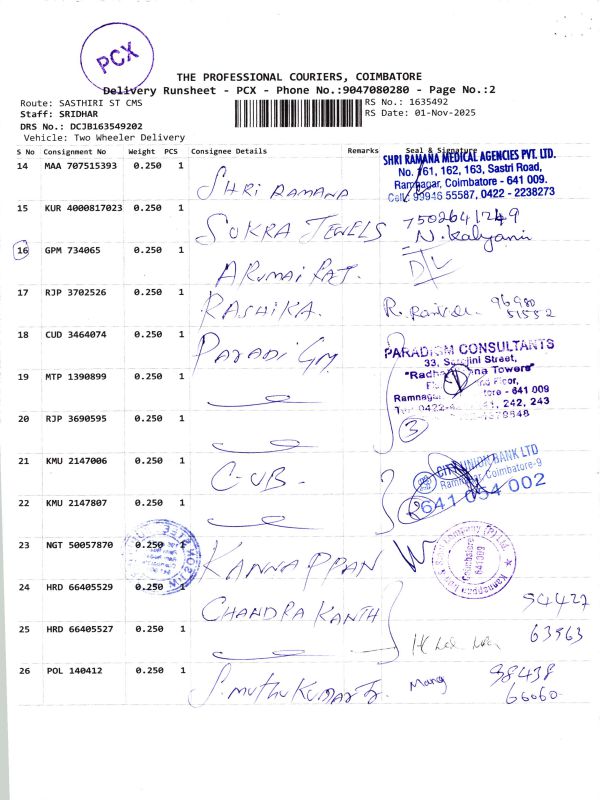 PCX
THE PROFESSIONAL COURIERS, COIMBATORE
Delivery Runsheet - PCX - Phone No.:9047080280 - Page No.:2
Route: SASTHIRI ST CMS
Staff: SRIDHAR
DRS No.: DCJB163549202
Vehicle: Two Wheeler Delivery
RS No.: 1635492
RS Date: 01-Nov-2025
S No Consignment No Weight PCS Consignee Details Remarks Seal & Signature
14 MAA 707515393 0.250 1 SHRI RAMANA
SHRI RAMANA MEDICAL AGENCIES PVT. LTD.
No. 161, 162, 163, Sastri Road,
Ramnagar, Coimbatore - 641 009.
Cell: 99946 55587, 0422 - 2238273
15 KUR 4000817023 0.250 1 SUKRA JEWELS 7502641249
N. Kalyani
16 GPM 734065 0.250 1 ARUMAI RAJ. D/L
17 RJP 3702526 0.250 1 RASHIKA. 96980
51552
18 CUD 3464074 0.250 1 PARADIGM
PARADIGM CONSULTANTS
33, Sarojini Street,
Towers"
Floor,
Ramnagar, 641 009
242, 243
19 MTP 1390899 0.250 1
20 RJP 3690595 0.250 1 3
21 KMU 2147006 0.250 1 CUB.
CITY UNION BANK LTD
Ramnagar, Coimbatore-9
641 054 002
22 KMU 2147807 0.250 1
23 NGT 50057870 0.250 1 KANNAPPAN
Coimbatore
641009
24 HRD 66405529 0.250 1 CHANDRA KANTH 94427
25 HRD 66405527 0.250 1 63563
26 POL 140412 0.250 1 S. muthu Kumar Jr. Mang 98438
66060